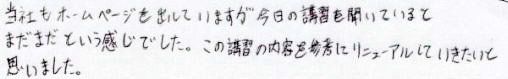 当社もホームページを出していますが今日の講習を聞いていると
まだまだという感じでした。この講習の内容を参考にリニューアルしていきたいと
思いました。